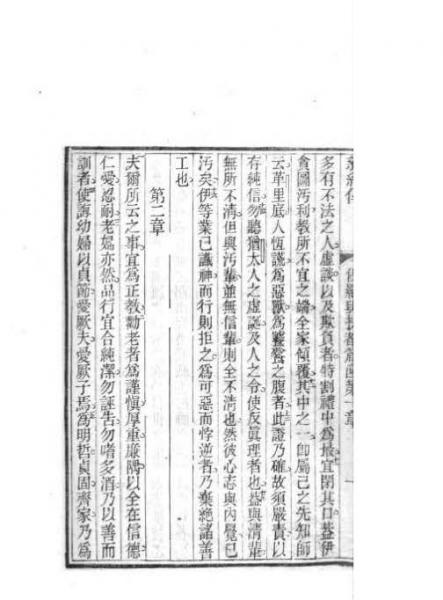 多有不法之人虛談以及欺負者特割禮中為最宜閉其口蓋伊
貪圖污利教所不宜之端全家傾覆其中之一卽屬己之先知師
云革里底人恆謊為惡獸為饕餮之腹者此證乃確故須嚴責以
存純信勿聽猶太人之虛誕及人之令使反眞理者也蓋與清輩
無所不清但與污輩並無信輩則全不清也然彼心志與內覺已
污矣伊等業已識神而行則拒之為可惡而悖逆者乃棄絶諸善
工也
第二章
夫爾所云之事宜為正教勸老者為謹愼厚重廉隅以全在信德
仁愛忍耐老婦亦然品行宜合純潔勿誣告勿嗜多酒乃以善而
訓者使誨幼婦以貞節愛厥夫愛厥子焉為明哲貞固齊家乃為